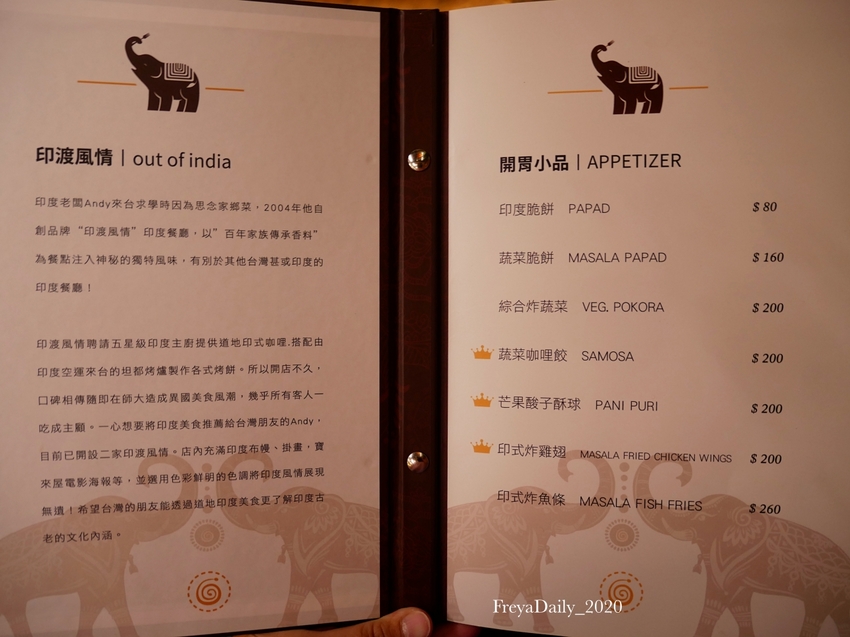 印渡風情 | out of india
印度老闆Andy來台求學時因為思念家鄉菜，2004年他自
創品牌“印渡風情”印度餐廳，以”百年家族傳承香料”
為餐點注入神秘的獨特風味，有別於其他台灣甚或印度的
印度餐廳！
印渡風情聘請五星級印度主廚提供道地印式咖哩.搭配由
印度空運來台的坦都烤爐製作各式烤餅。所以開店不久，
口碑相傳隨即在師大造成異國美食風潮，幾乎所有客人一
吃成主顧。一心想要將印度美食推薦給台灣朋友的Andy，
目前已開設二家印渡風情。店內充滿印度布幔、掛畫，寶
來屋電影海報等，並選用色彩鮮明的色調將印度風情展現
無遺！希望台灣的朋友能透過道地印度美食更了解印度古
老的文化內涵。
開胃小品 | APPETIZER
印度脆餅 PAPAD $ 80
蔬菜脆餅 MASALA PAPAD $ 160
綜合炸蔬菜 VEG. POKORA $ 200
蔬菜咖哩餃 SAMOSA $ 200
芒果酸子酥球 PANI PURI $ 200
印式炸雞翅 MASALA FRIED CHICKEN WINGS $ 200
印式炸魚條 MASALA FISH FRIES $ 260
FreyaDaily_2020